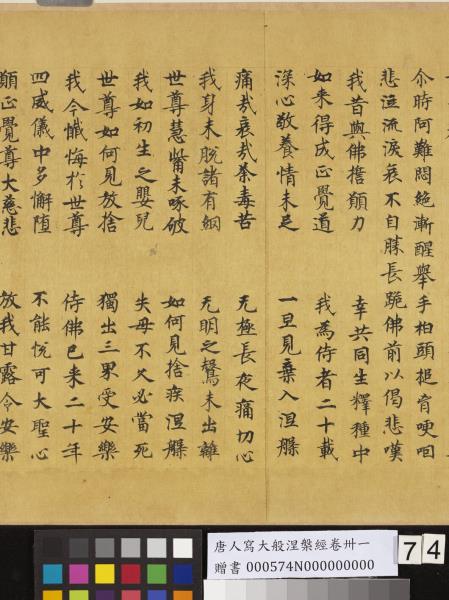 尒時阿難悶絶漸醒舉手拍頭搥胷哽咽
悲泣流淚哀不自勝長跪佛前以偈悲嘆
我昔與佛擔願力　幸共同生釋種中
如来得成正覺道　我為侍者二十載
深心敬養情未足　一旦見棄入涅槃
痛哉哀哉荼毒苦　无極長夜痛切心
我身未脫諸有網　无明之鷇未出離
世尊慧觜未啄破　如何見捨疾涅槃
我如初生之嬰兒　失母不久必當死
世尊如何見放捨　獨出三界受安樂
我今懺悔於世尊　侍佛已来二十年
四威儀中多懈墮　不能悅可大聖心
願正覺尊大慈悲　放我甘露令安樂
唐人寫大般涅槃經卷卅一
贈書 000574N000000000
74